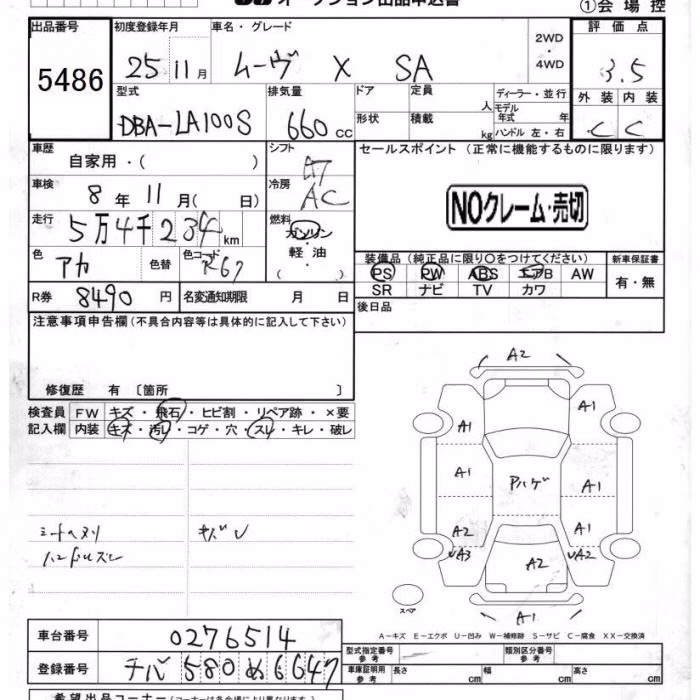 ①会場控
出品番号 初度登録年月 車名・グレード 2WD ・ 4WD 評価点
5486 25 11月 ムーヴ X SA 3.5
型式 排気量 ドア 定員 人 ディーラー・並行 外装 内装
DBA-LA100S 660cc 形状 積載 kg モデル年式 年 ハンドル 左・右 C C
車歴 自家用・( ) シフト セールスポイント (正常に機能するものに限ります)
車検 8年11月( 日) 冷房 AC
NOクレーム・売切
走行 5万4千234km 燃料 ガソリン・軽油( )
色 アカ 色替 色コード R67
装備品 (純正品に限り○をつけてください) 新車保証書
PS PW ABS エアB AW 有・無
SR ナビ TV カワ
R券 8490円 名変通知期限 月 日
後日品
注意事項申告欄 (不具合内容等は具体的に記入して下さい)
修復歴 有 〔箇所 〕
検査員 FW キズ・飛石・ヒビ割・リペア跡・×要
記入欄 内装 キズ・汚れ・コゲ・穴・スレ・キレ・破レ
A2
A1 A1
A1 Aハゲ A1
A2 A1
UA3 A2 UA2
A1
スペア
シートヘタリ キズU
ハンドルズレ
A-キズ E-エクボ U-凹み W-補修跡 S-サビ C-腐食 XX-交換済
車台番号 0276514
登録番号 チバ 580 め 6647
型式指定番号 参考 類別区分番号 参考
車庫証明用 参考 長さ cm 幅 cm 高さ cm
希望出品コーナー